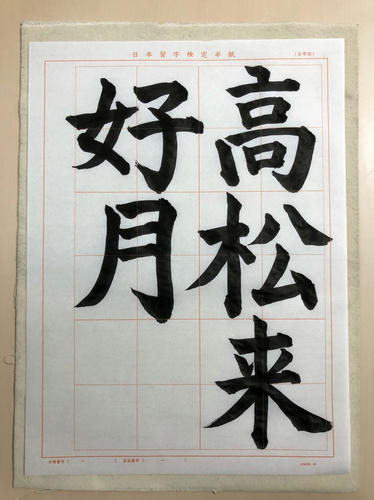 日本習字検定半紙
高松来
好月